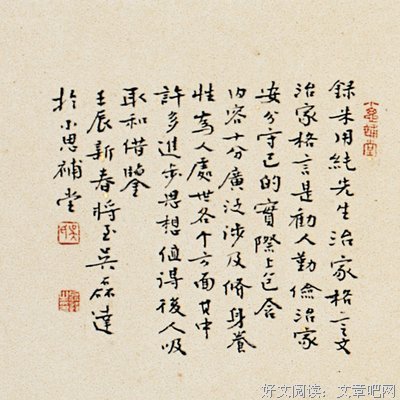 録朱用純先生治家格言文
治家格言是勸人勤儉治家
安分守己的實際上包含
内容十分廣泛涉及修身養
性為人處世各个方面其中
許多進步思想值得後人吸
取和借鑒
壬辰新春將至吴磊達
於小思補堂
好文阅读：文章吧网